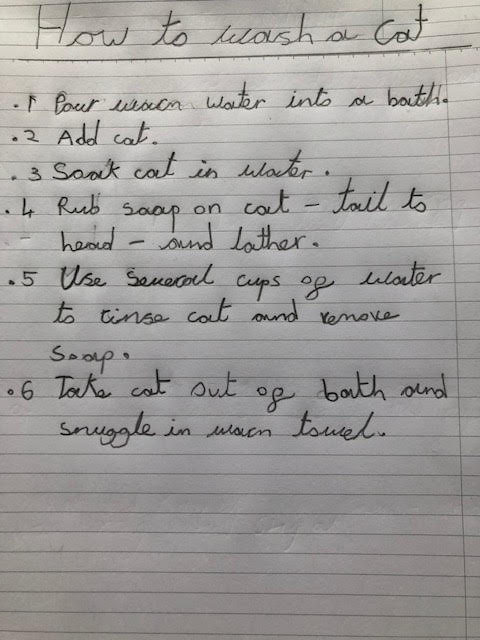 How to wash a cat
.1 Pour warm water into a bath.
.2 Add cat.
.3 Soak cat in water.
.4 Rub soap on cat - tail to
head - and lather.
.5 Use several cups of water
to rinse cat and remove
soap.
.6 Take cat out of bath and
snuggle in warm towel.